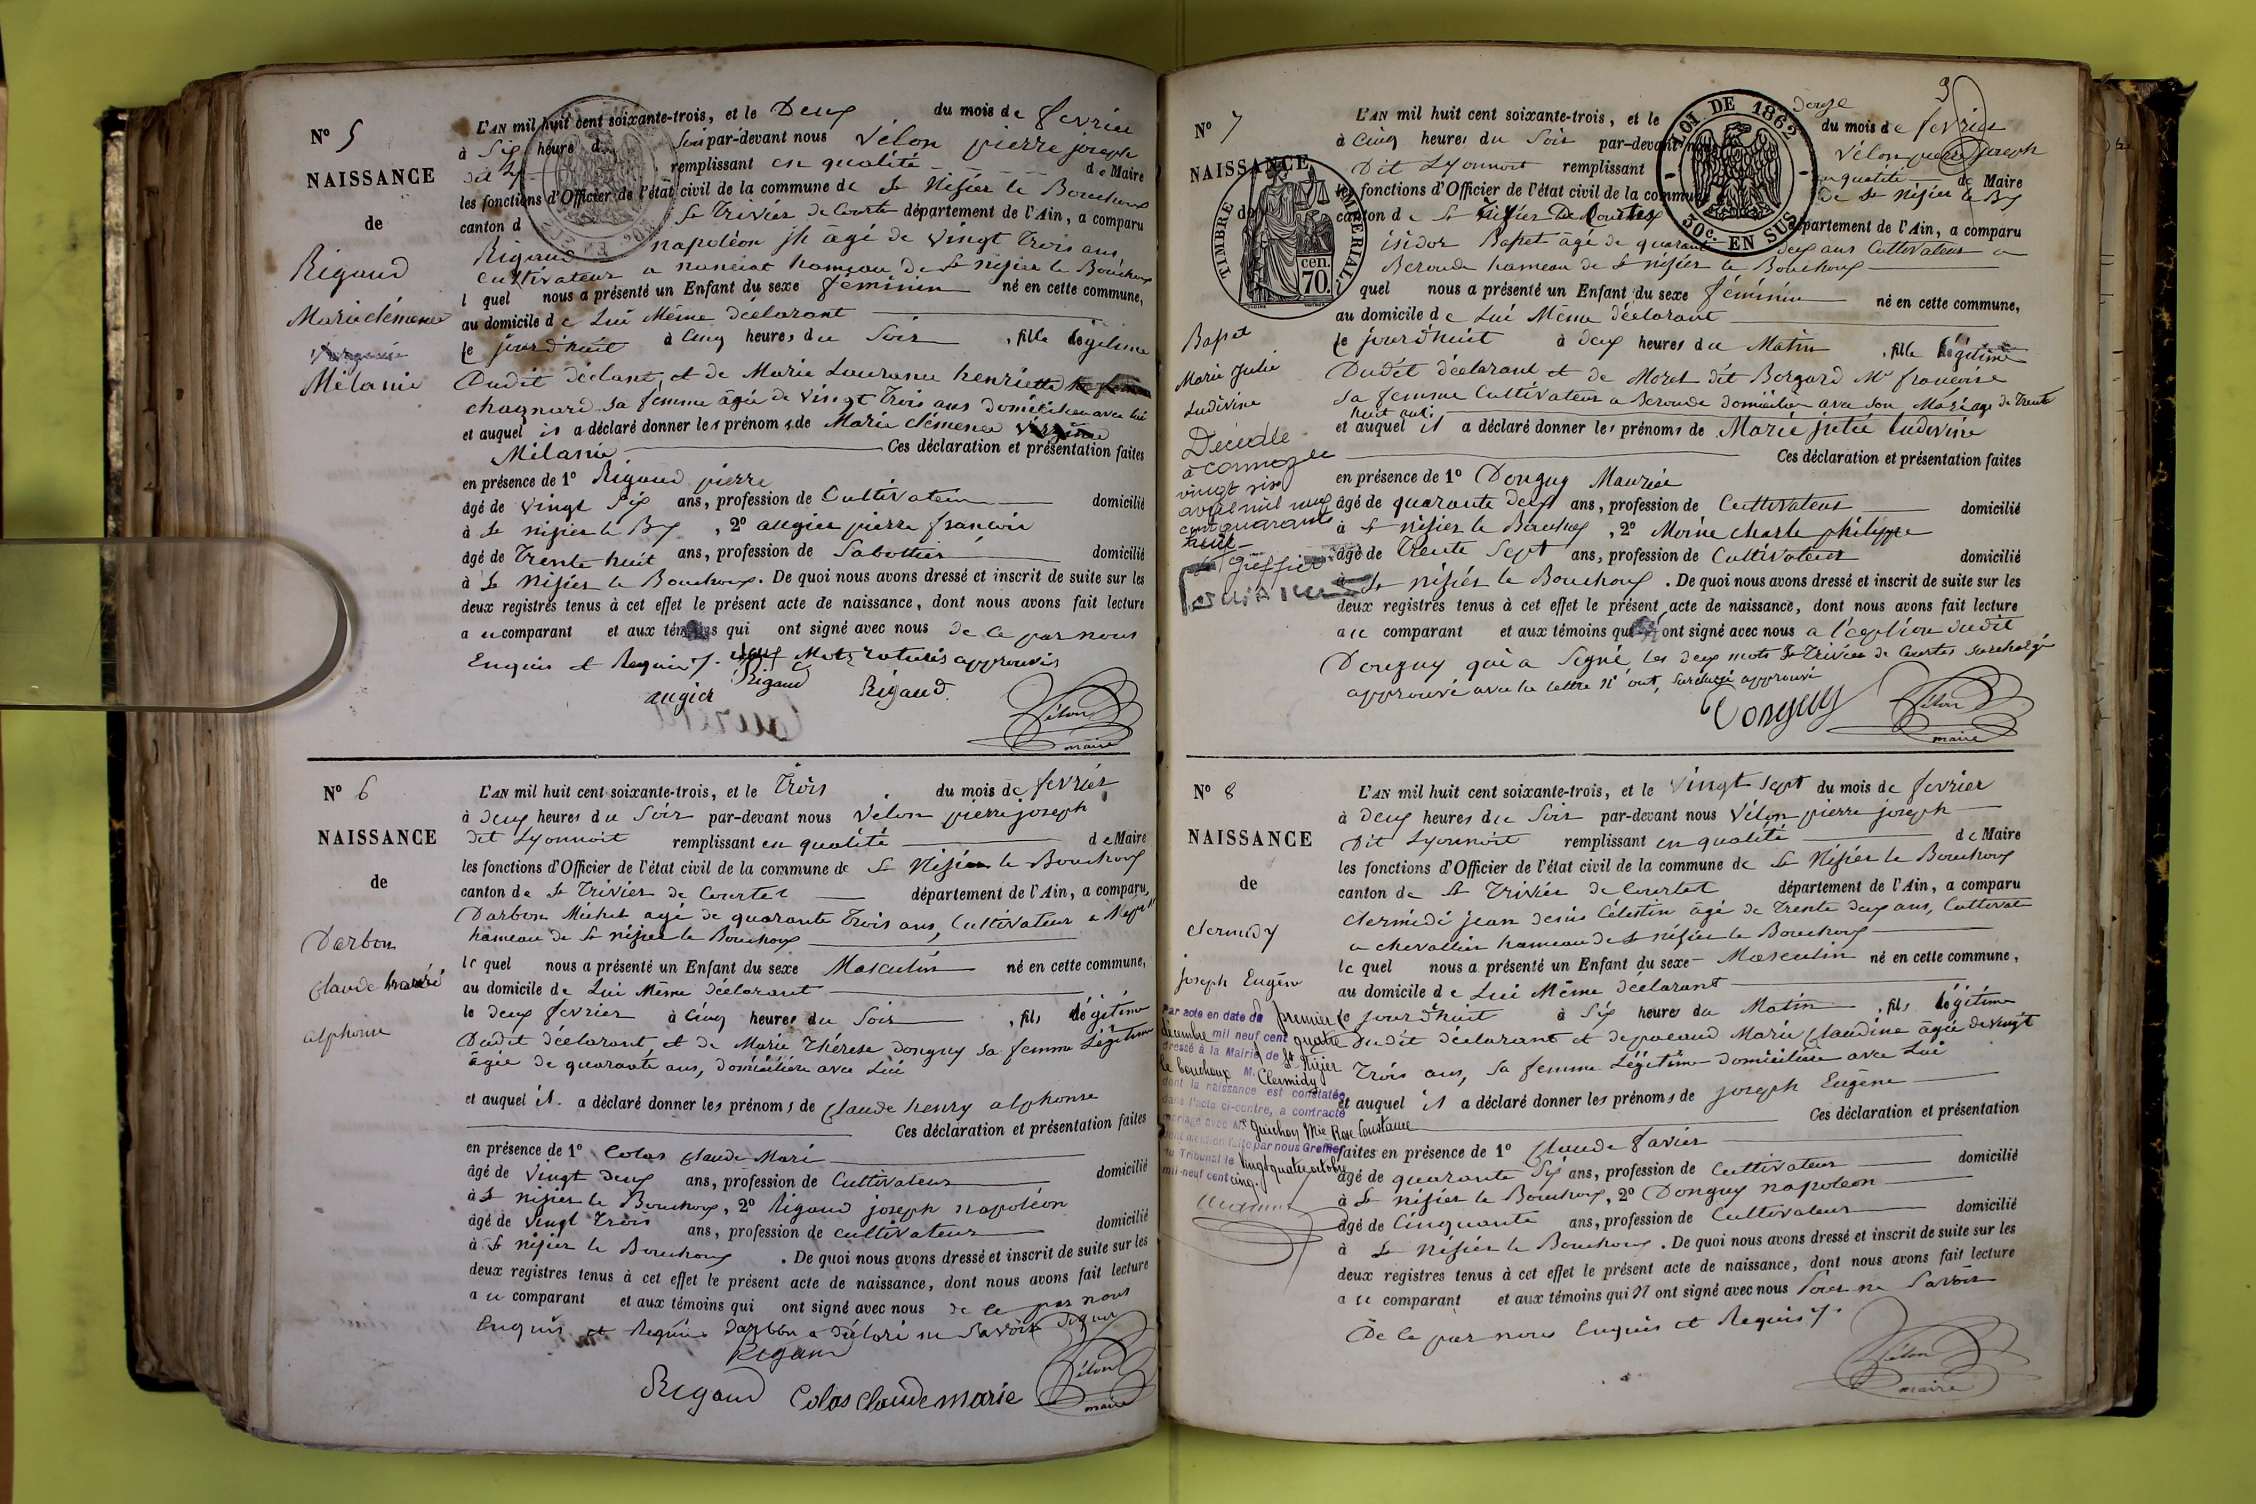 Nº 5
NAISSANCE
de
Rigaud
Marie clémence
Mélanie
L'AN mil huit cent soixante-trois, et le Deux du mois de fevrier
à Six heure du Soir par-devant nous Vélon pierre joseph
remplissant en qualité de Maire
les fonctions d'Officier de l'état civil de la commune de St Nizier le Bouchoux
canton d St Trivier de Courtes département de l'Ain, a comparu
Rigaud napoléon jh âgé de vingt trois ans
cultivateur a hameau de St nizier le Bouchoux
l quel nous a présenté un Enfant du sexe féminin né en cette commune,
au domicile de Lui Même déclarant
le jourd'huit à Cinq heures du Soir, fille légitime
Dudit déclant, et de Marie Lauranu henriette
chagnard sa femme âgée de vingt trois ans domiciliée avec lui
et auquel il a déclaré donner les prénoms de Marie clémence
Mélanie Ces déclaration et présentation faites
en présence de 1º Rigaud pierre
âgé de vingt Six ans, profession de Cultivateur domicilié
à St nizier le Bx, 2º augier pierre francoir
âgé de Trente huit ans, profession de Sabottier domicilié
à St Nizier le Bouchoux. De quoi nous avons dressé et inscrit de suite sur les
deux registres tenus à cet effet le présent acte de naissance, dont nous avons fait lecture
a u comparant et aux témoins qui ont signé avec nous de ce par nous
Enquis et Requis. Mots raturés approuvés
augier Rigaud Rigaud. Vélon
maire
Nº 6
NAISSANCE
de
Darbon
Claude henri
alphonse
L'AN mil huit cent soixante-trois, et le Trois du mois de fevrier
à deux heures du Soir par-devant nous Vélon pierre joseph
dit Lyonnoit remplissant en qualité de Maire
les fonctions d'Officier de l'état civil de la commune de St Nizier le Bouchoux
canton de St Trivier de Courtes département de l'Ain, a comparu,
Darbon Michel agé de quarante trois ans, Cultivateur a
hameau de St nizier le Bouchoux
le quel nous a présenté un Enfant du sexe Masculin né en cette commune,
au domicile de Lui Même déclarant
le deux fevrier à Cinq heures du Soir, fils légitime
Dudit déclarant, et de Marie Thérese donguy sa femme Légitime
âgée de quarante ans, domiciliée avec Lui
et auquel il a déclaré donner les prénoms de Claude henry alphonse
Ces déclaration et présentation faites
en présence de 1º Colas Claude Mari
âgé de vingt deux ans, profession de Cultivateur domicilié
à St nizier le Bouchoux, 2º Rigaud joseph napoléon
âgé de vingt trois ans, profession de cultivateur domicilié
à St nizier le Bouchoux. De quoi nous avons dressé et inscrit de suite sur les
deux registres tenus à cet effet le présent acte de naissance, dont nous avons fait lecture
a u comparant et aux témoins qui ont signé avec nous de ce par nous
Enquis et Requis Darbon a déclaré ne Savoir Signer
Rigaud
Rigaud Colas Claude marie Vélon
maire
3
Nº 7
NAISSANCE
de
TIMBRE IMPERIAL
70 cen.
LOI DE 1862
50c. EN SUS
Basset
Marie Julie
Ludivine
Décédée
à Cormoz le
vingt six
avril mil neuf
cent quarante
huit
Le Greffier
L'AN mil huit cent soixante-trois, et le douze du mois de fevrier
à Cinq heures du Soir par-devant nous Vélon pierre Joseph
Dit Lyonnoit remplissant en qualité de Maire
les fonctions d'Officier de l'état civil de la commune de St nizier le Bx
canton de St Trivier De Courtes département de l'Ain, a comparu
isidor Basset âgé de quarante deux ans Cultivateur a
Beroude hameau de St nizier le Bouchoux
quel nous a présenté un Enfant du sexe féminin né en cette commune,
au domicile de Lui Même déclarant
le jourd'huit à deux heures du Matin, fille légitime
Dudit déclarant et de Morel dit Borgard Me françoise
Sa femme Cultivateur a Beroude domiciliée avec son Mariage de trente
huit ans
et auquel il a déclaré donner les prénoms de Marie julie ludivine
Ces déclaration et présentation faites
en présence de 1º Donguy Maurice
âgé de quarante deux ans, profession de Cultivateur domicilié
à St nizier le Bouchoux, 2º Moine charle philippe
âgé de trente Sept ans, profession de Cultivateur domicilié
à St nizier le Bouchoux. De quoi nous avons dressé et inscrit de suite sur les
deux registres tenus à cet effet le présent acte de naissance, dont nous avons fait lecture
a u comparant et aux témoins qui n'ont signé avec nous a l'éxeption dudit
Donguy qui a Segné, les deux mots St Trivier de Courtes surchargé
approuvé avec la lettre N' ont, Surchargé approuvé
Donguy Vélon
maire
Nº 8
NAISSANCE
de
Clermidy
joseph Eugène
Par acte en date du premier
décembre mil neuf cent quatre
dressé à la Mairie de St Nizier
le bouchoux M. Clermidy
dont la naissance est constatée
dans l'acte ci-contre, a contracté
mariage avec Mlle Guichon Mie Rose Constance
dont mention faite par nous Greffier
du Tribunal le vingt quatre octobre
mil-neuf cent cinq.
L'AN mil huit cent soixante-trois, et le Vingt sept du mois de fevrier
à deux heures du Soir par-devant nous Vélon pierre joseph
Dit Lyonnoit remplissant en qualité de Maire
les fonctions d'Officier de l'état civil de la commune de St Nizier le Bouchoux
canton de St Trivier de Courtet département de l'Ain, a comparu
Clermidi jean denis Célestin âgé de trente deux ans, Cultivate
a chevallier hameau de St nizier le Bouchoux
le quel nous a présenté un Enfant du sexe Masculin né en cette commune,
au domicile de Lui Même déclarant
le jourd'huit à Six heures du Matin, fils légitime
Dudit déclarant et de pocaud Marie Claudine âgée de vingt
Trois ans, Sa femme Légitime domiciliée avec Lui
et auquel il a déclaré donner les prénoms de joseph Eugène
Ces déclaration et présentation
faites en présence de 1º Claude favier
âgé de quarante Six ans, profession de Cultivateur domicilié
à St nizier le Bouchoux, 2º Donguy napoleon
âgé de Cinquante ans, profession de Cultivateur domicilié
à St nizier le Bouchoux. De quoi nous avons dressé et inscrit de suite sur les
deux registres tenus à cet effet le présent acte de naissance, dont nous avons fait lecture
a u comparant et aux témoins qui n'ont signé avec nous pour ne Savoir
De ce par nous Enquis et Requis.
Vélon
maire